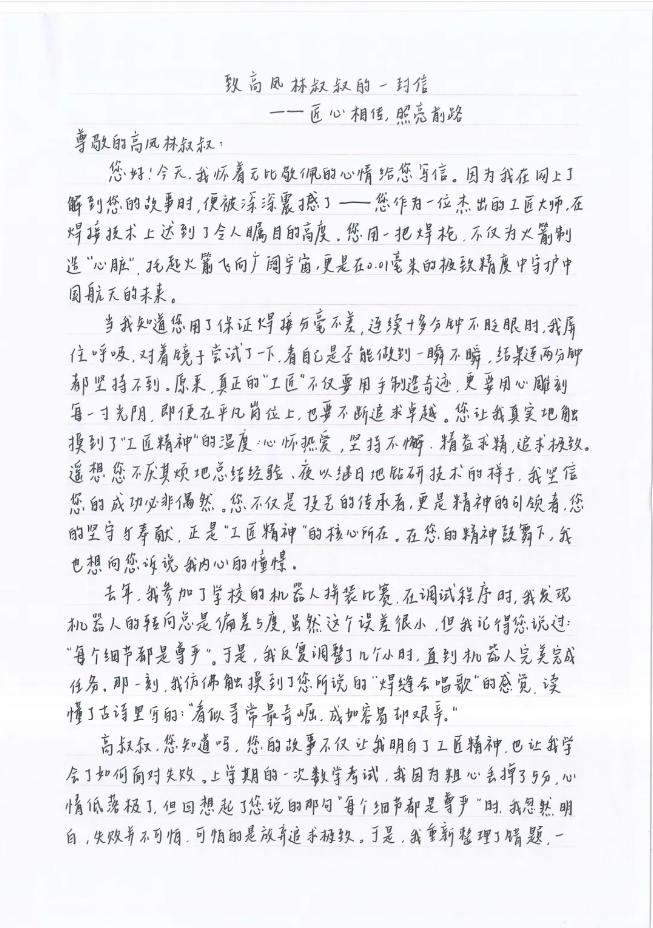 致高凤林叔叔的一封信
——匠心相传,照亮前路
尊敬的高凤林叔叔:
您好!今天,我怀着无比敬佩的心情给您写信。因为我在网上了
解到您的故事时,便被深深震撼了——您作为一位杰出的工匠大师,在
焊接技术上达到了令人瞩目的高度。您用一把焊枪,不仅为火箭制
造“心脏”,托起火箭飞向广阔宇宙,更是在0.01毫米的极致精度中守护中
国航天的未来。
当我知道您用了保证焊接分毫不差,连续十多分钟不眨眼时,我屏
住呼吸,对着镜子尝试了一下,看自己是否能做到一瞬不瞬,结果连两分钟
都坚持不到。原来,真正的“工匠”不仅要用手制造奇迹,更要用心雕刻
每一寸光阴,即便在平凡岗位上,也要不断追求卓越。您让我真实地触
摸到了“工匠精神”的温度:心怀热爱,坚持不懈,精益求精,追求极致。
遥想您不厌其烦地总结经验、夜以继日地钻研技术的样子,我坚信
您的成功必非偶然。您不仅是技艺的传承者,更是精神的引领者,您
的坚守与奉献,正是“工匠精神”的核心所在。在您的精神鼓舞下,我
也想向您诉说我内心的憧憬。
去年,我参加了学校的机器人拼装比赛,在调试程序时,我发现
机器人的转向总是偏差5度,虽然这个误差很小,但我记得您说过:
“每个细节都是尊严”。于是,我反复调整了几个小时,直到机器人完美完成
任务。那一刻,我仿佛触摸到了您所说的“焊缝会唱歌”的感觉,读
懂了古诗里写的:“看似寻常最奇崛,成如容易却艰辛。”
高叔叔,您知道吗,您的故事不仅让我明白了工匠精神,也让我学
会了如何面对失败。上学期的一次数学考试,我因为粗心丢掉了5分,心
情低落极了,但回想起了您说的那句“每个细节都是尊严”时,我忽然明
白,失败并不可怕,可怕的是放弃追求极致。于是,我重新整理了错题,一